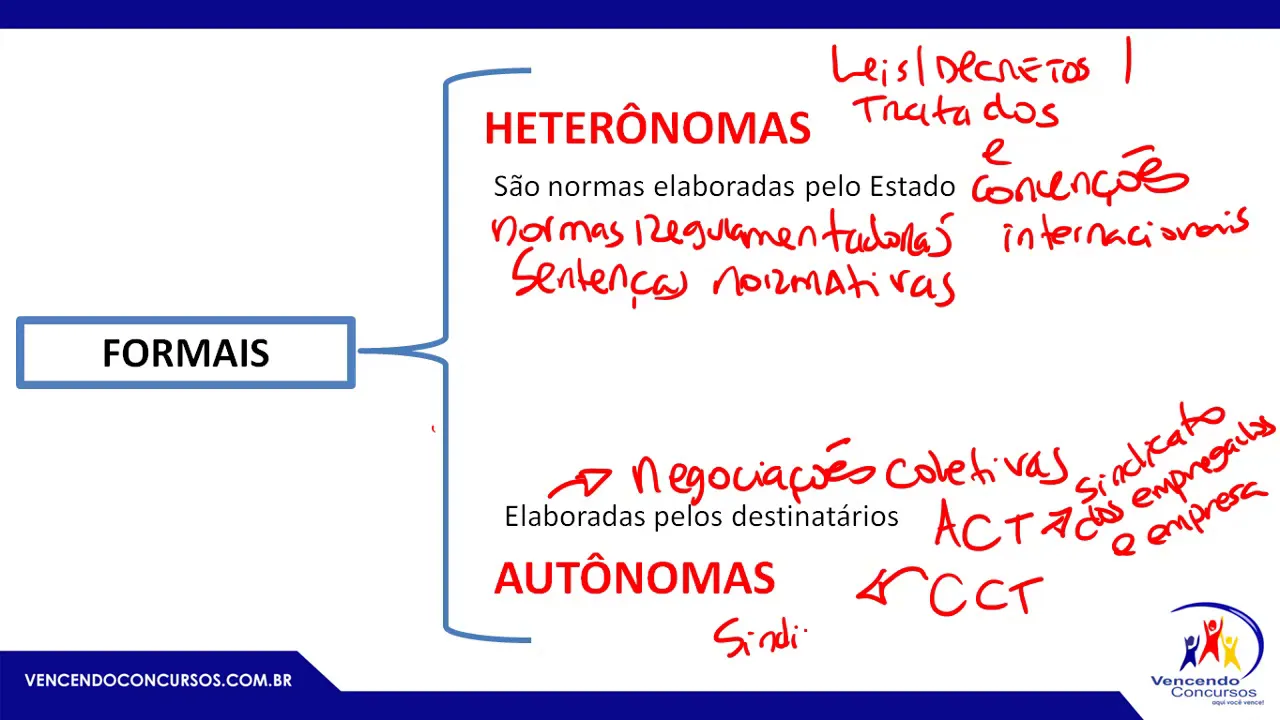 Leis/Decretos/
Tratados
HETERÔNOMAS
e
São normas elaboradas pelo Estado
convenções
normas regulamentadoras
internacionais
Sentenças normativas
FORMAIS
negociações coletivas
sindicato
dos empregados
e empresa
Elaboradas pelos destinatários
ACT
AUTÔNOMAS
CCT
Sindi
VENCENDOCONCURSOS.COM.BR
Vencendo
Concursos
aqui você vence!